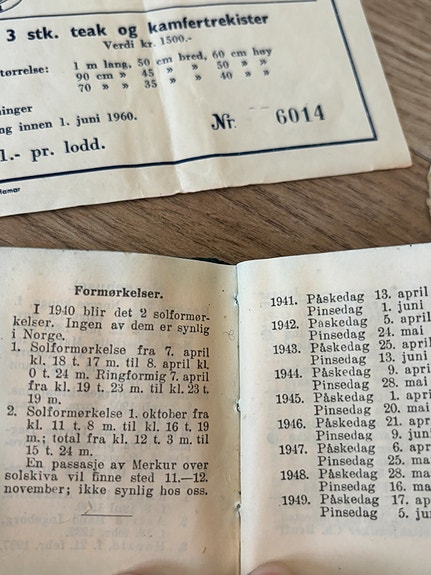 3 stk. teak og kamfertrekister
Verdi kr. 1500.-
tørrelse: 1 m lang, 50 cm bred, 60 cm høy
90 cm » 45 » » 50 » »
70 » » 35 » » 40 » »
ninger
ng innen 1. juni 1960.
Nr. 6014
1.- pr. lodd.
Hamar
Formørkelser.
I 1940 blir det 2 solformør-
kelser. Ingen av dem er synlig
i Norge.
1. Solformørkelse fra 7. april
kl. 18 t. 17 m. til 8. april kl.
0 t. 24 m. Ringformig 7. april
fra kl. 19 t. 23 m. til kl. 23 t.
19 m.
2. Solformørkelse 1. oktober fra
kl. 11 t. 8 m. til kl. 16 t. 19
m.; total fra kl. 12 t. 3 m. til
15 t. 24 m.
En passasje av Merkur over
solskiva vil finne sted 11.—12.
november; ikke synlig hos oss.
1941. Påskedag 13. april
Pinsedag 1. juni
1942. Påskedag 5. april
Pinsedag 24. mai
1943. Påskedag 25. april
Pinsedag 13. juni
1944. Påskedag 9. april
Pinsedag 28. mai
1945. Påskedag 1. april
Pinsedag 20. mai
1946. Påskedag 21. april
Pinsedag 9. juni
1947. Påskedag 6. april
Pinsedag 25. mai
1948. Påskedag 28. ma
Pinsedag 16. ma
1949. Påskedag 17. ap
Pinsedag 5. jun